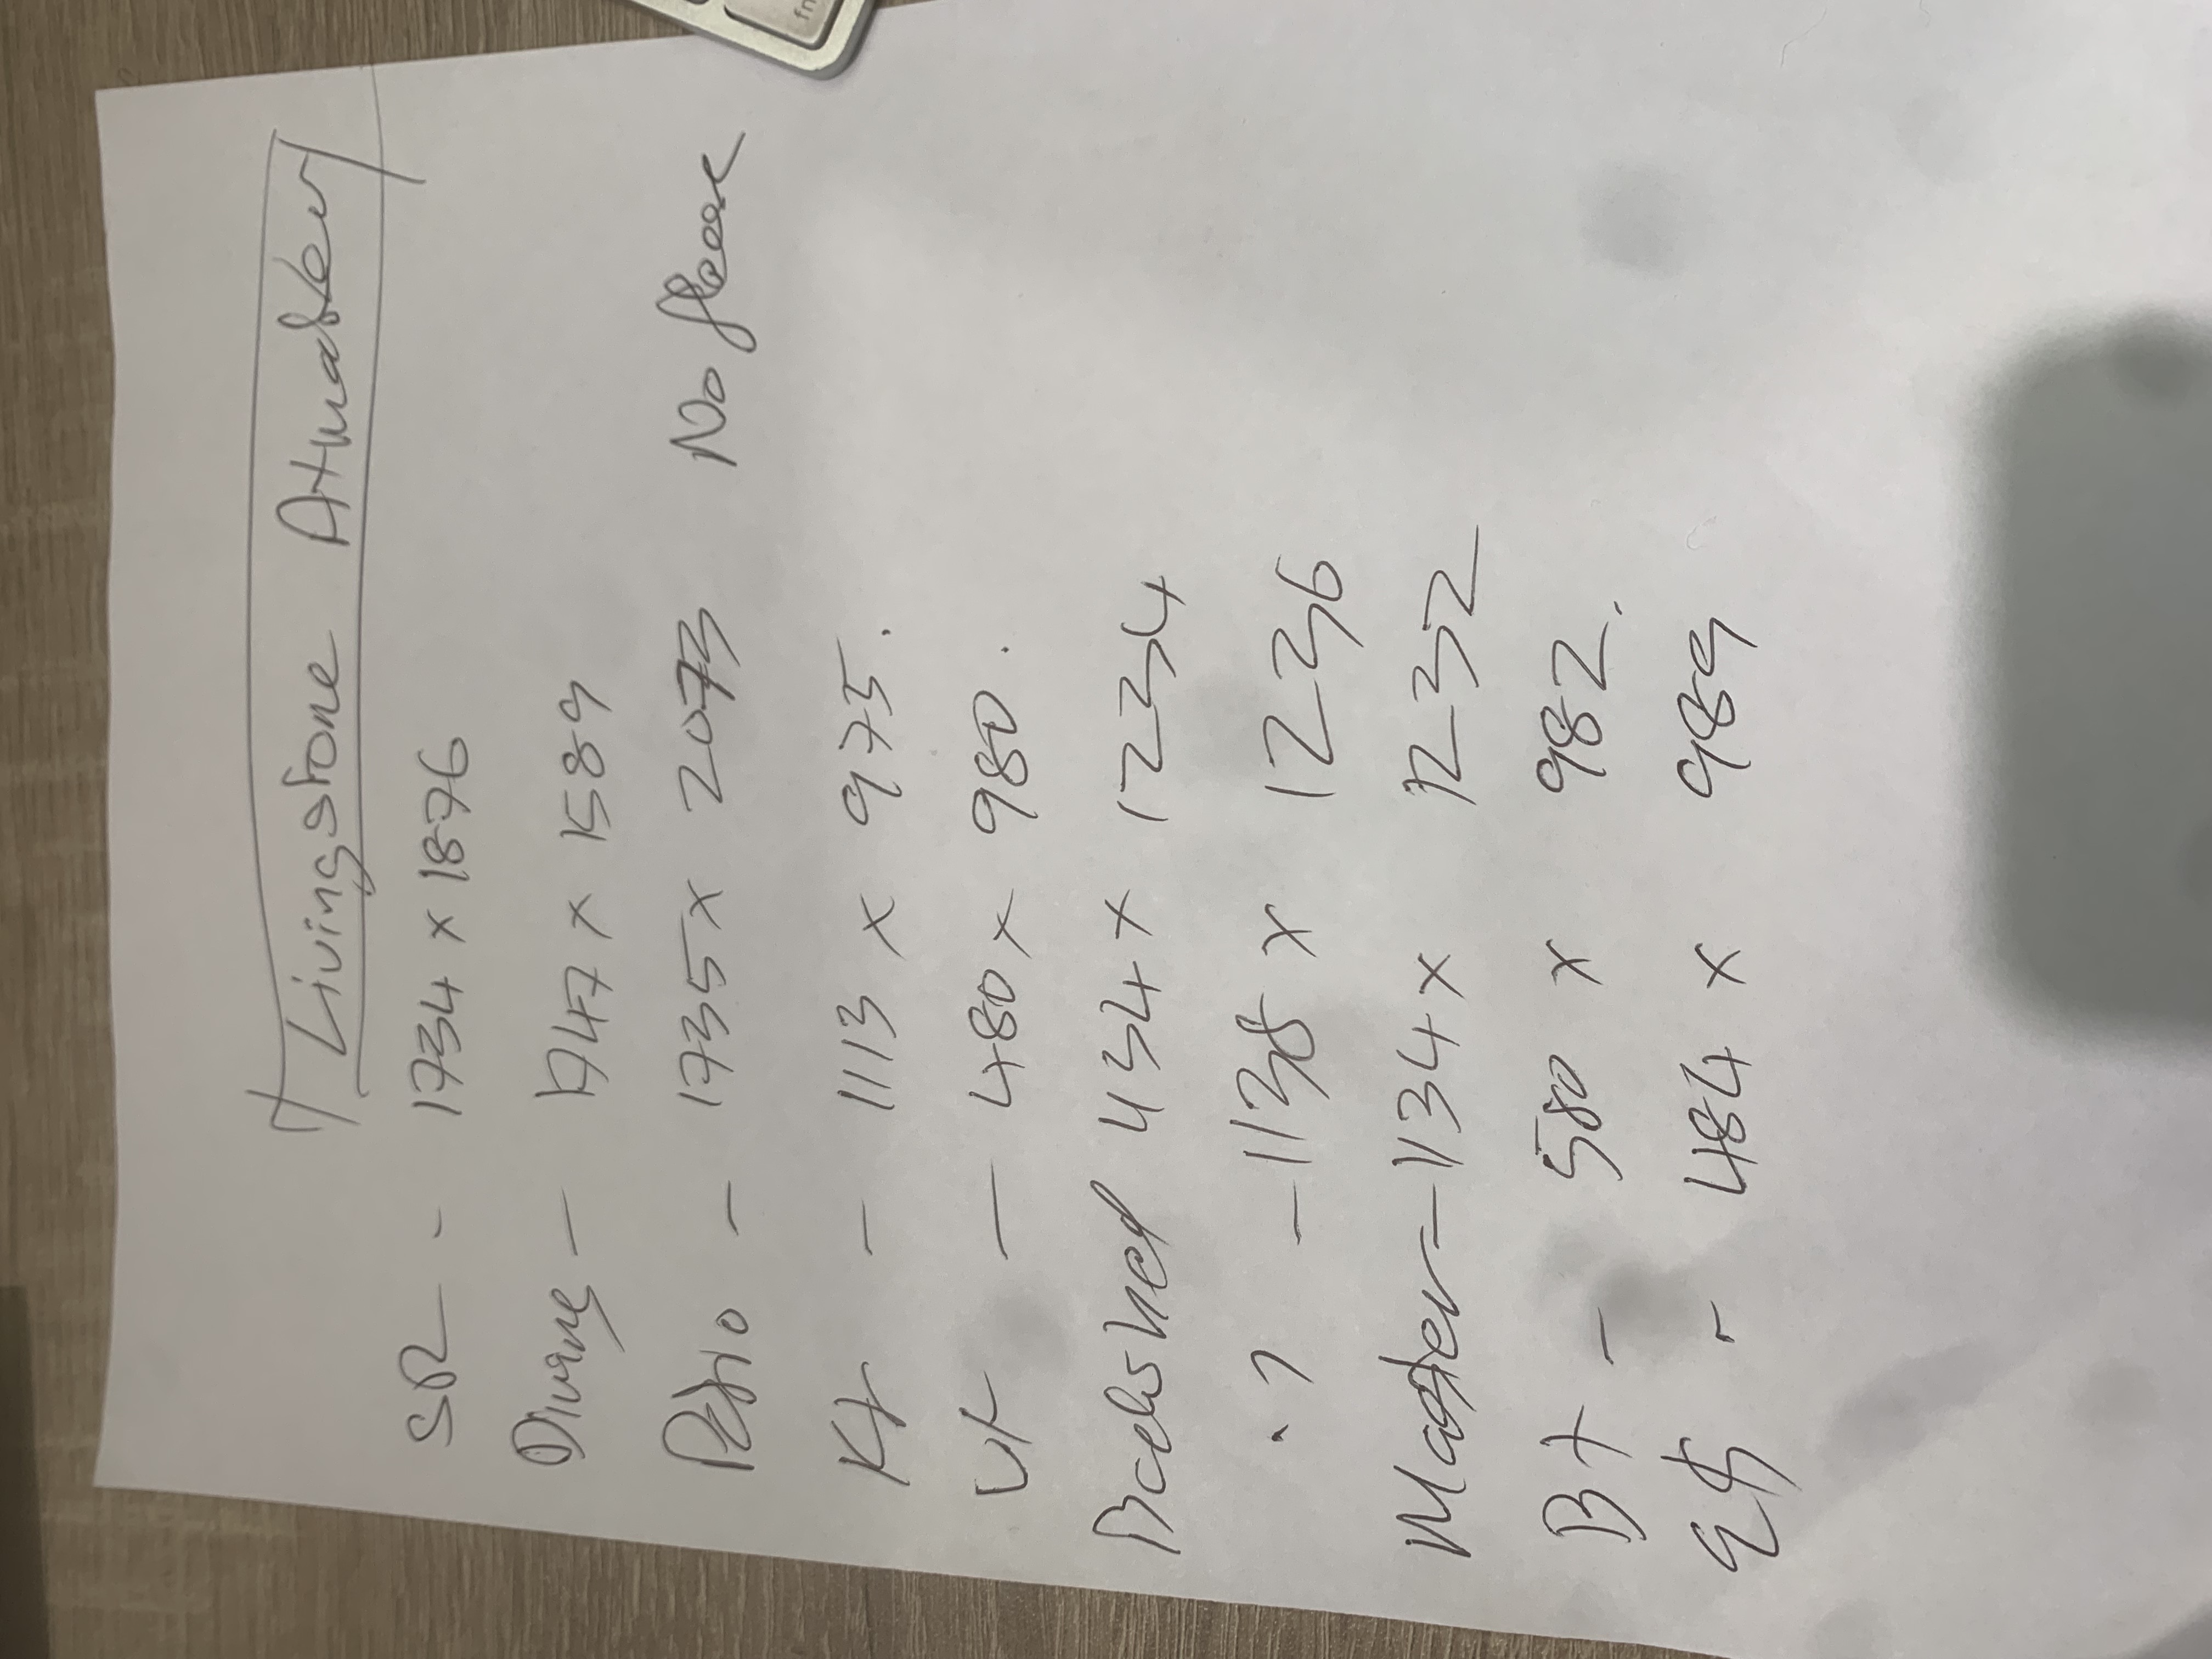 Livingstone
SR - 1734 x 1876
Dining - 1747 x 1589
Patio - 1735 x 2073 No
Kt - 1113 x 975.
Ut - 480 x 980.
434 x 1234
" - 1138 x 1236
Master - 1134 x 1232
BT - 580 x 982.
- 484 x 989
fn